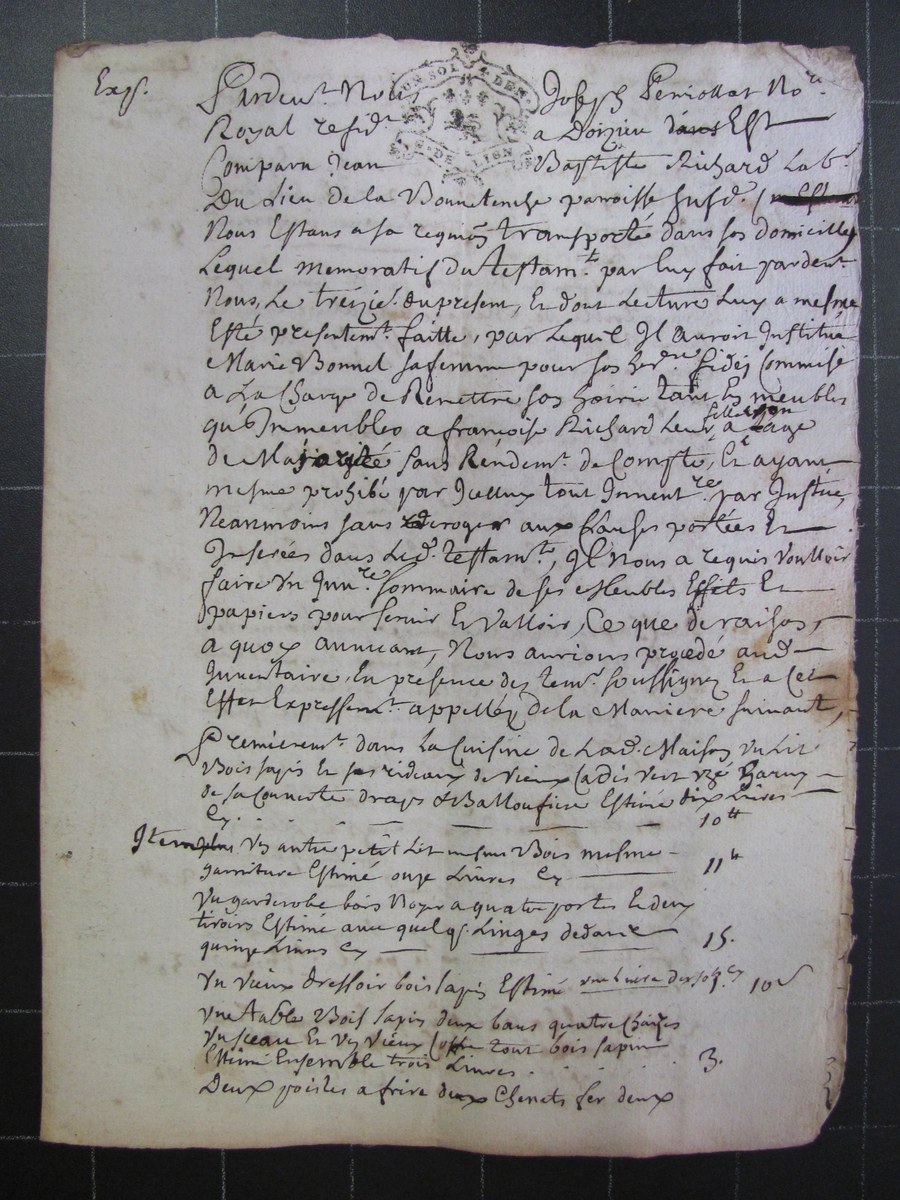 Exp.
Pardevt. Nous Joseph Perrollat Nore.
Royal residt. a Doizieu dans Est
Comparu Jean Baptiste Richard Labr.
Du Lieu de la Bonnetenche parroisse susd.
Nous Estans a sa requion transporté dans son domicille
Lequel memoratif du testamt. par luy fait pardevt.
Nous, Le treizie. du present, Et dont Lecture Luy a mesme
Esté presentemt. faitte, par Lequel Il auroit Institué
Marie Bonnel sa femme pour son herre. fidei Commise
a La Charge de Remettre son hoirie tant Es meubles
qu'Immeubles a françoise Richard Leur fille a L'age
de Majorité sans Rendemt. de Compte, Et ayant
mesme prohibé par Icelluy tout Inventre. par Justice,
Neanmoins sans deroger aux Clauses portées Et
Inserées dans Led. testamt., Il Nous a requis voulloir
faire un Invre. sommaire de ses Meubles Effets Et
papiers pour servir Et valloir, Ce que de raison,
a quoy annuant, Nous aurions procédé aud
Inventaire, En presence des temt. soussignez Et a Cet
Effet Expressemt. appellez de la Maniere suivant,
Premieremt. dans La Cuisine de Lad. Maison un Lit
Bois sapin Et ses rideaux de vieux Cadis vert uzé Garny
de sa Couverte draps & Balloufiere Estimé dix Livres
Cy 10tt
Item un autre petit Lit mesme Bois mesme
garniture Estimé onze Livres Cy 11tt
un garderobe bois Noyer a quatre portes Et deux
tiroirs Estimé avec quelqs. Linges dedans
quinze Livres Cy 15.
un vieux dressoir bois sapin Estimé 10s
une table Bois sapin deux bans quatre Chaizes
un sceau Et un vieux Coffre tout bois sapin
Estimé Ensemble trois Livres 3.
Deux poisles a frire deux Chenets fer deux